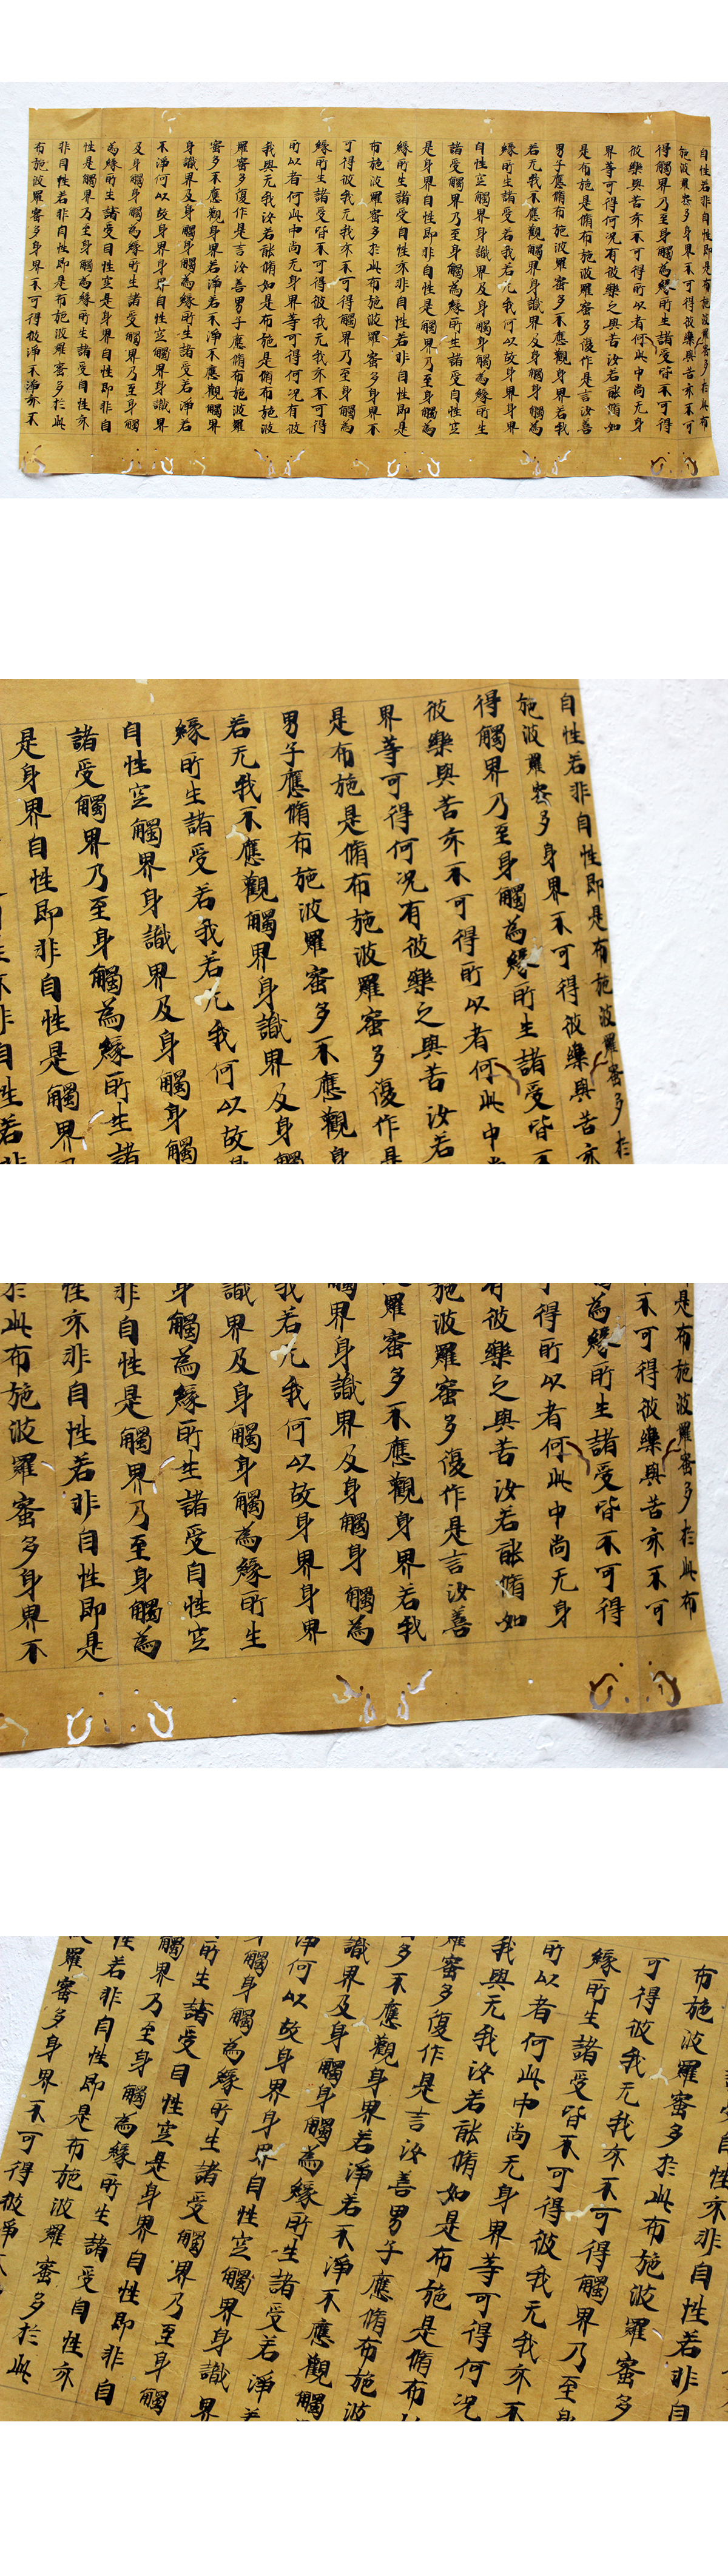 自性若非自性即是布施波羅蜜多於此布
施波羅蜜多身界不可得彼樂與苦亦不可
得觸界乃至身觸為緣所生諸受皆不可得
彼樂與苦亦不可得所以者何此中尚无身
界等可得何況有彼樂之與苦汝若能脩如
是布施是脩布施波羅蜜多復作是言汝善
男子應脩布施波羅蜜多不應觀身界若我
若无我不應觀觸界身識界及身觸身觸為
緣所生諸受若我若无我何以故身界身界
自性空觸界身識界及身觸身觸為緣所生
諸受觸界乃至身觸為緣所生諸受自性空
是身界自性即非自性是觸界乃至身觸為
緣所生諸受自性亦非自性若非自性即是
布施波羅蜜多於此布施波羅蜜多身界不
可得彼我无我亦不可得觸界乃至身觸為
緣所生諸受皆不可得彼我无我亦不可得
所以者何此中尚无身界等可得何況有彼
我與无我汝若能脩如是布施是脩布施波
羅蜜多復作是言汝善男子應脩布施波羅
蜜多不應觀身界若淨若不淨不應觀觸界
身識界及身觸身觸為緣所生諸受若淨若
不淨何以故身界身界自性空觸界身識界
及身觸身觸為緣所生諸受觸界乃至身觸
為緣所生諸受自性空是身界自性即非自
性是觸界乃至身觸為緣所生諸受自性亦
非自性若非自性即是布施波羅蜜多於此
布施波羅蜜多身界不可得彼淨不淨亦不